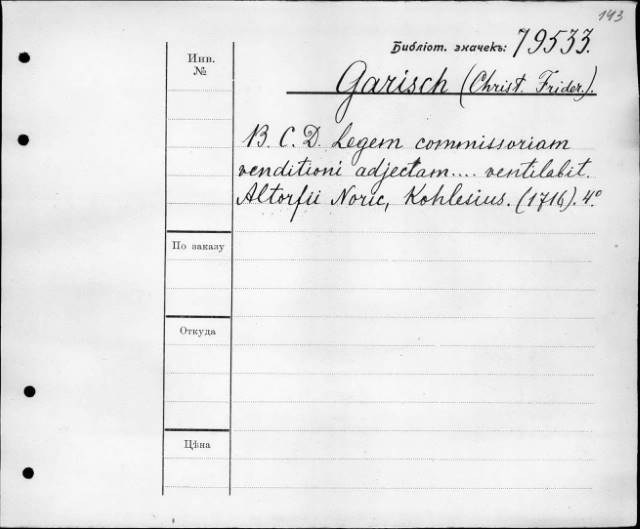 143
Библіот. значекъ: 79533.
Инв. №
Garisch (Christ. Frider.).
B. C. D. Legem commissoriam
venditioni adjectam.... ventilabit.
Altorfii Noric, Kohlesius. (1716). 4º.
По заказу
Откуда
Цѣна